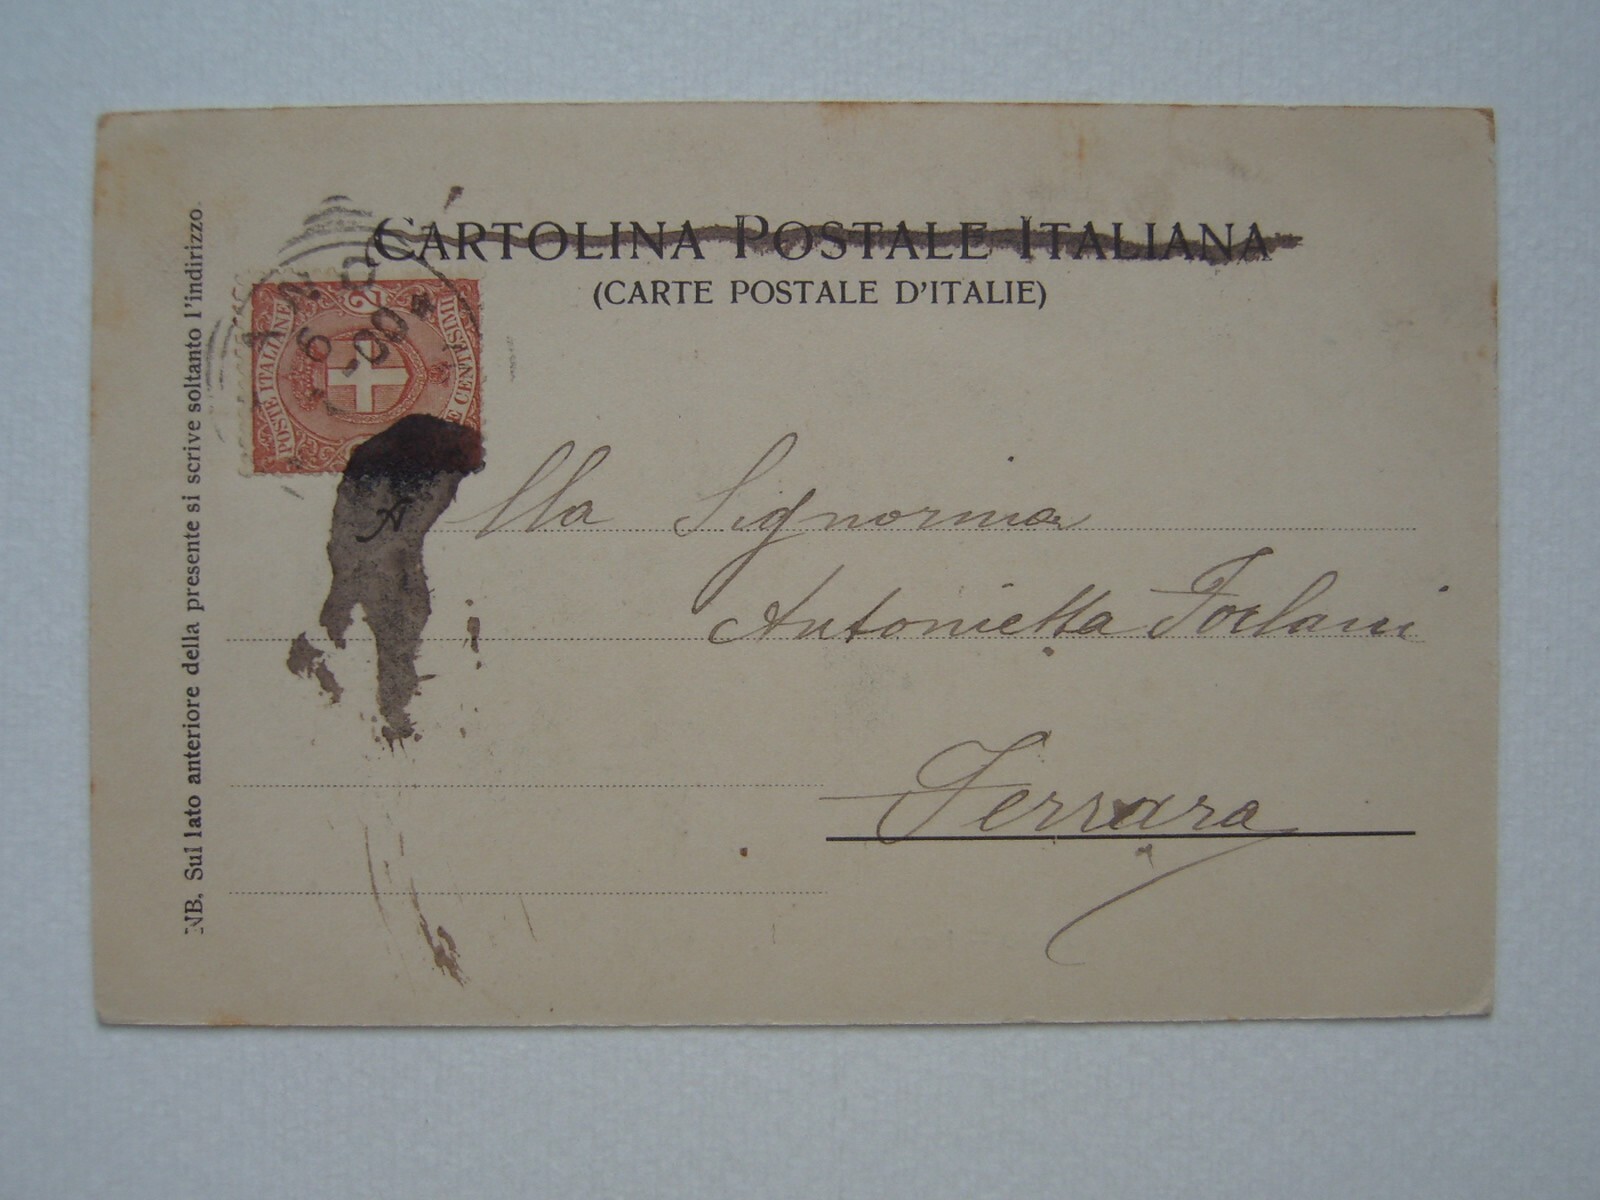 CARTOLINA POSTALE ITALIANA
(CARTE POSTALE D'ITALIE)
POSTE ITALIANE
2
CENTESIMI
6
00
Alla Signorina
Antonietta Forlani
Ferrara
NB. Sul lato anteriore della presente si scrive soltanto l'indirizzo.